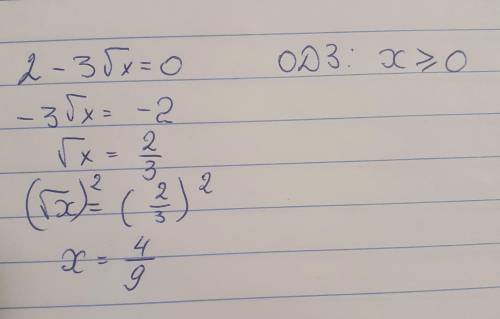 2 - 3√x = 0    ОДЗ: x ⩾ 0
-3√x = -2
√x = 2/3
(√x)² = (2/3)²
x = 4/9